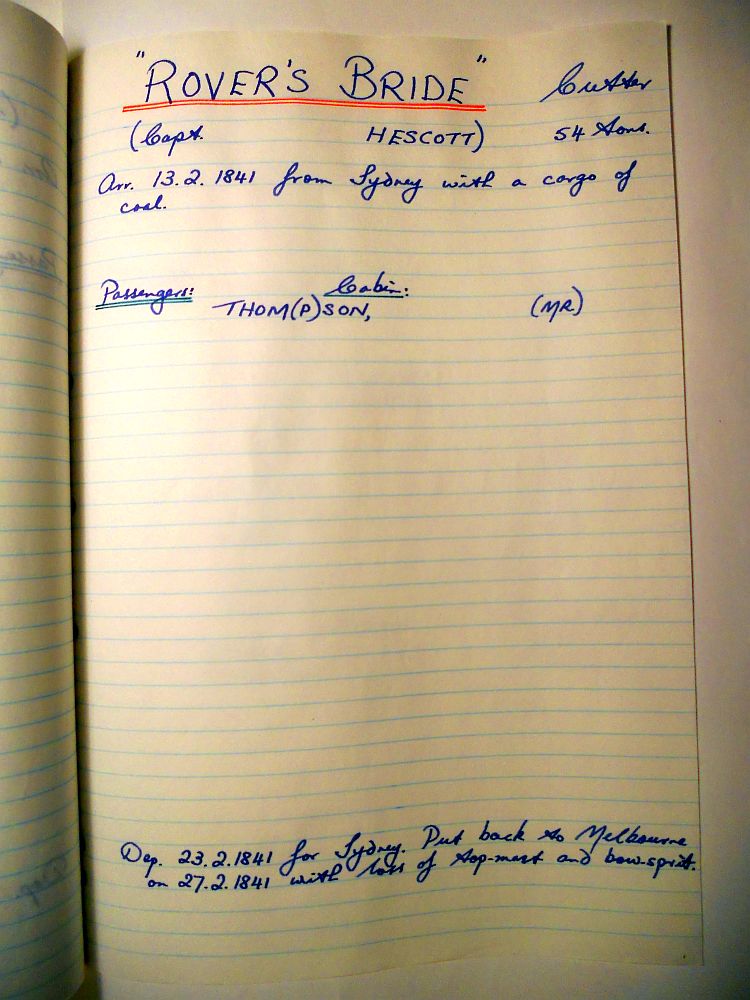 "ROVER'S BRIDE" Cutter
(Capt. HESCOTT) 54 tons.
Arr. 13.2.1841 from Sydney with a cargo of
coal.
Passengers: Cabin:
THOM(P)SON, (MR)
Dep. 23.2.1841 for Sydney. Put back to Melbourne
on 27.2.1841 with loss of top-mast and bow-sprit.